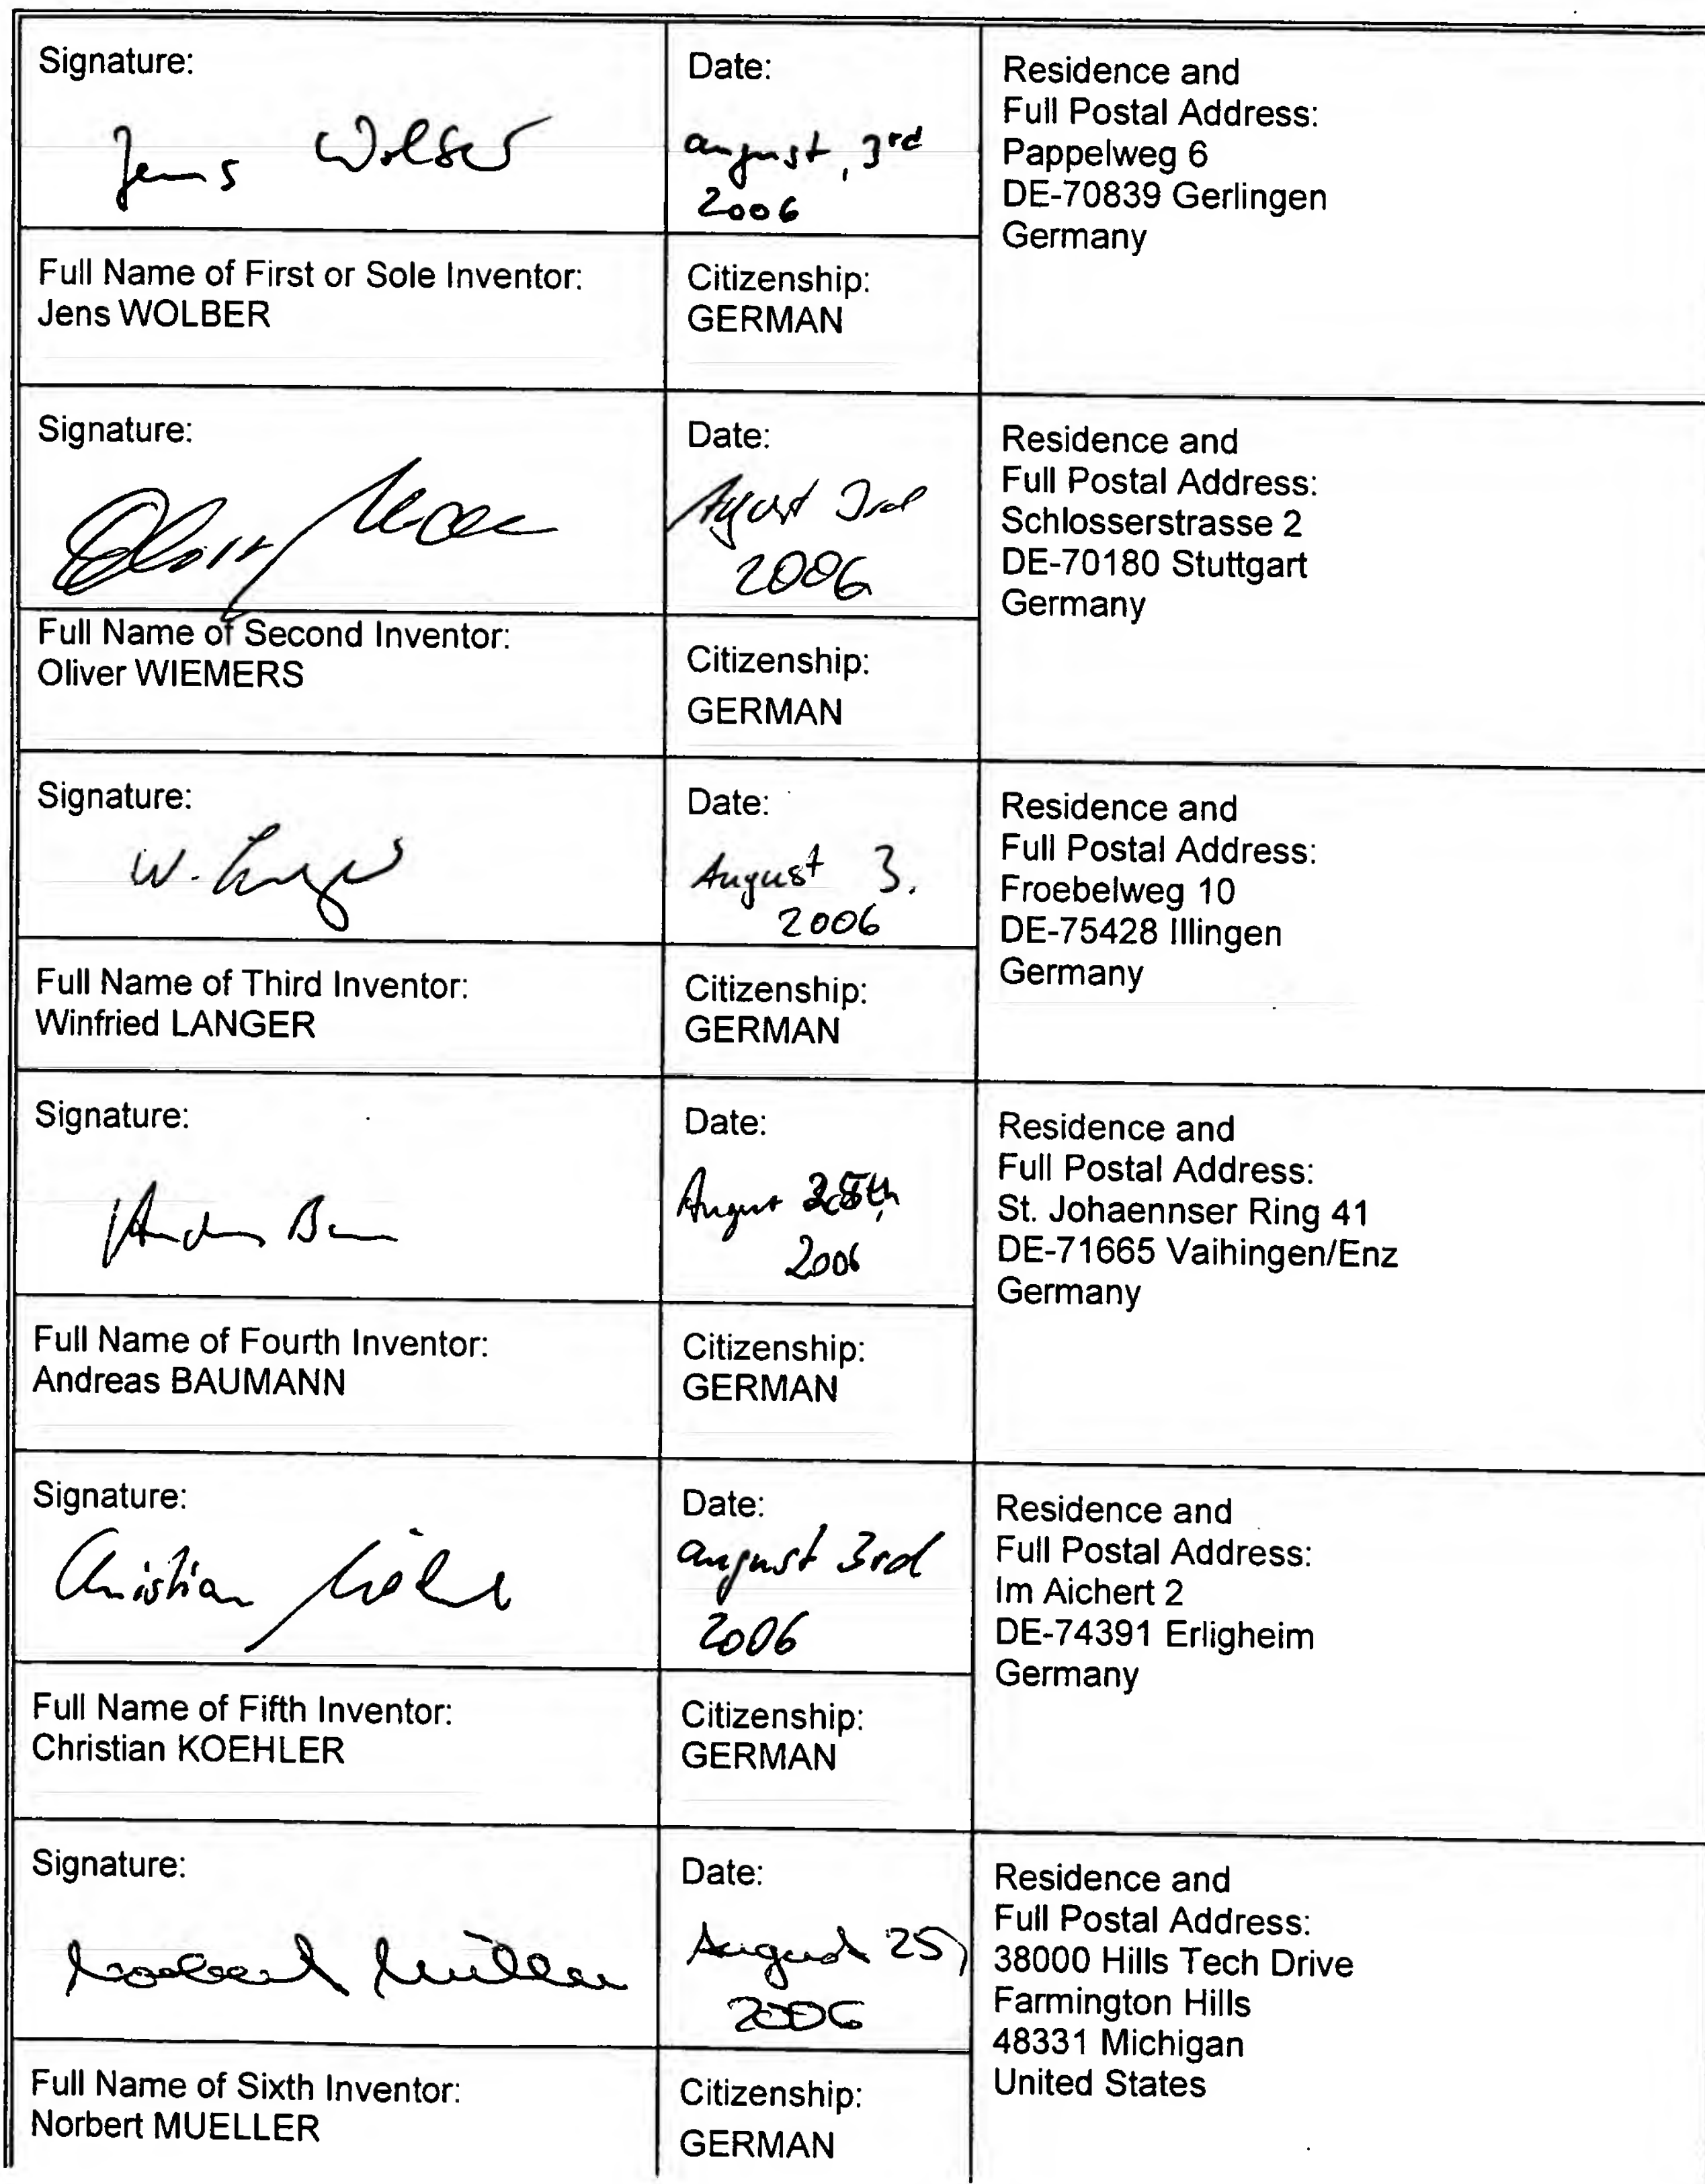 Signature:
Jens Wolber
Date:
august, 3rd
2006
Residence and
Full Postal Address:
Pappelweg 6
DE-70839 Gerlingen
Germany
Full Name of First or Sole Inventor:
Jens WOLBER
Citizenship:
GERMAN
Signature:
Date:
August 3rd
2006
Residence and
Full Postal Address:
Schlosserstrasse 2
DE-70180 Stuttgart
Germany
Full Name of Second Inventor:
Oliver WIEMERS
Citizenship:
GERMAN
Signature:
W. Langer
Date:
August 3.
2006
Residence and
Full Postal Address:
Froebelweg 10
DE-75428 Illingen
Germany
Full Name of Third Inventor:
Winfried LANGER
Citizenship:
GERMAN
Signature:
Date:
August
2006
Residence and
Full Postal Address:
St. Johaennser Ring 41
DE-71665 Vaihingen/Enz
Germany
Full Name of Fourth Inventor:
Andreas BAUMANN
Citizenship:
GERMAN
Signature:
Christian Köhler
Date:
august 3rd
2006
Residence and
Full Postal Address:
Im Aichert 2
DE-74391 Erligheim
Germany
Full Name of Fifth Inventor:
Christian KOEHLER
Citizenship:
GERMAN
Signature:
Norbert Müller
Date:
August 25,
2006
Residence and
Full Postal Address:
38000 Hills Tech Drive
Farmington Hills
48331 Michigan
United States
Full Name of Sixth Inventor:
Norbert MUELLER
Citizenship:
GERMAN